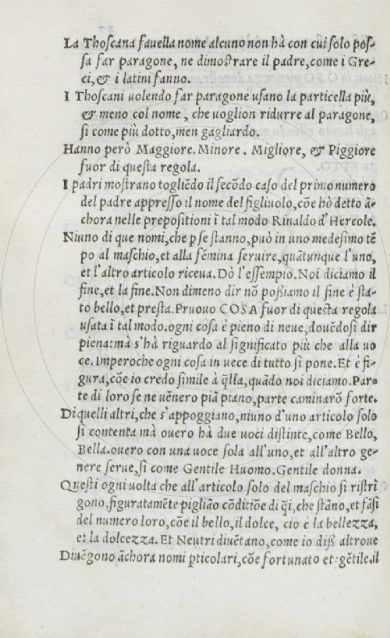 La Thoscana fauella nome alcuno non hà con cui solo pos=
sa far paragone, ne dimostrare il padre, come i Gre=
ci, & i latini fanno.
I Thoscani uolendo far paragone usano la particella più,
& meno col nome, che uoglion ridurre al paragone,
sì come più dotto, men gagliardo.
Hanno però Maggiore. Minore. Migliore, & Piggiore
fuor di questa regola.
I padri mostrano togliẽdo il secõdo caso del primo numero
del padre appresso il nome del figliuolo, cõe hò detto ã=
chora nelle prepositioni ì tal modo Rinaldo d'Hercole.
Niuno di que nomi, che p se stanno, può in uno medesimo tẽ
po al maschio, et alla fémina seruire, quãtunque l'uno,
et l'altro articolo riceua. Dò l'essempio. Noi diciamo il
fine, et la fine. Non dimeno dir nõ possiamo il fine è sta=
to bello, et presta. Pruouo COSA fuor di questa regola
usata ì tal modo. ogni cosa è pieno di neue, douẽdosi dir
piena: mà s'hà riguardo al significato più che alla uo
ce. Imperoche ogni cosa in uece di tutto si pone. Et è fi=
gura, cõe io credo simile à q̃lla, quãdo noi diciamo. Par=
te di loro se ne uẽnero pià piano, parte caminarõ forte.
Di quelli altri, che s'appoggiano, niuno d'uno articolo solo
si contenta mà ouero hà due uoci distinte, come Bello,
Bella. ouero con una uoce sola all'uno, et all'altro ge=
nere serue, sì come Gentile Huomo. Gentile donna.
Questi ogni uolta che all'articolo solo del maschio si ristrì
gono, figuratamẽte pigliāo cõditiõe di q̃i, che stāno, et fāsi
del numero loro, cõe il bello, il dolce, cio è la bellezza,
et la dolcezza. Et Neutri diuẽtano, come io dissi altroue
Diuẽgono ãchora nomi pticolari, cõe fortunato et gẽtile. il